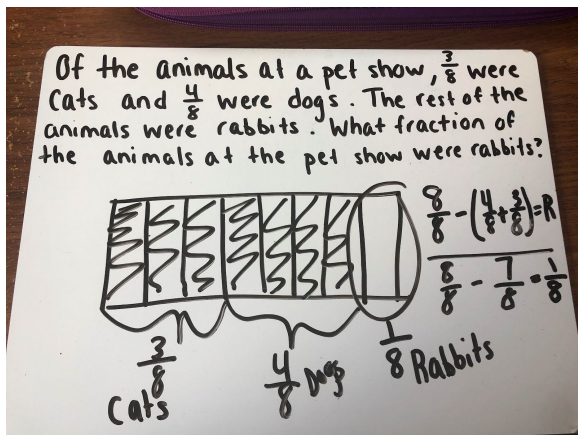 Of the animals at a pet show, 3/8 were
Cats and 4/8 were dogs. The rest of the
animals were rabbits. What fraction of
the animals at the pet show were rabbits?
8/8 - (4/8 + 3/8) = R
8/8 - 7/8 = 1/8
3/8 Cats
4/8 Dogs
1/8 Rabbits